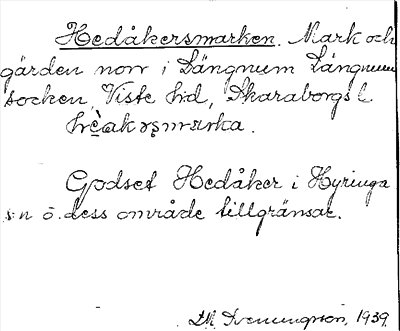 Hedåkersmarken. Mark och
gärden norr i Längnum Längnum
socken, Viste hd, Skaraborgs l.
Godset Hedåker i Hyringa
s:n ö. dess område tillgränsar.
1939.